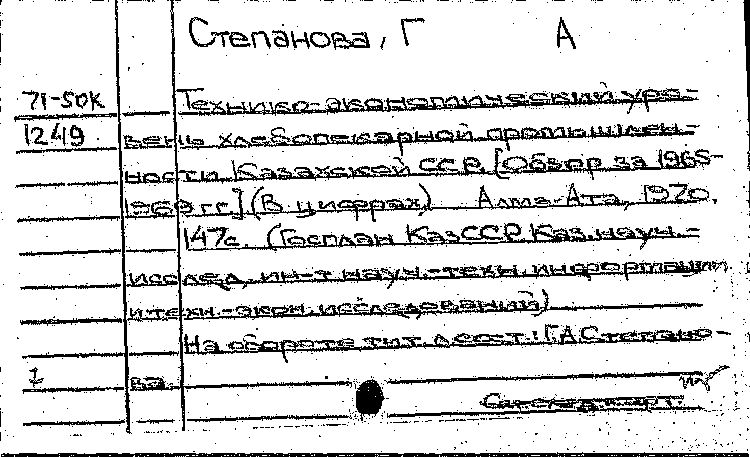 Степанова, Г А
71-50к Технико-экономический уро-
1249 вень хлебопекарной промышлен-
ности Казахской ССР. [Обзор за 1965-
1969 гг.] (В цифрах) Алма-Ата, 1970.
147с. (Госплан КазССР. Каз. науч.-
исслед. ин-т науч.-техн. информации
и техн.-экон. исследований)
На обороте тит. лист.: Г.А.Степано-
1 ва.